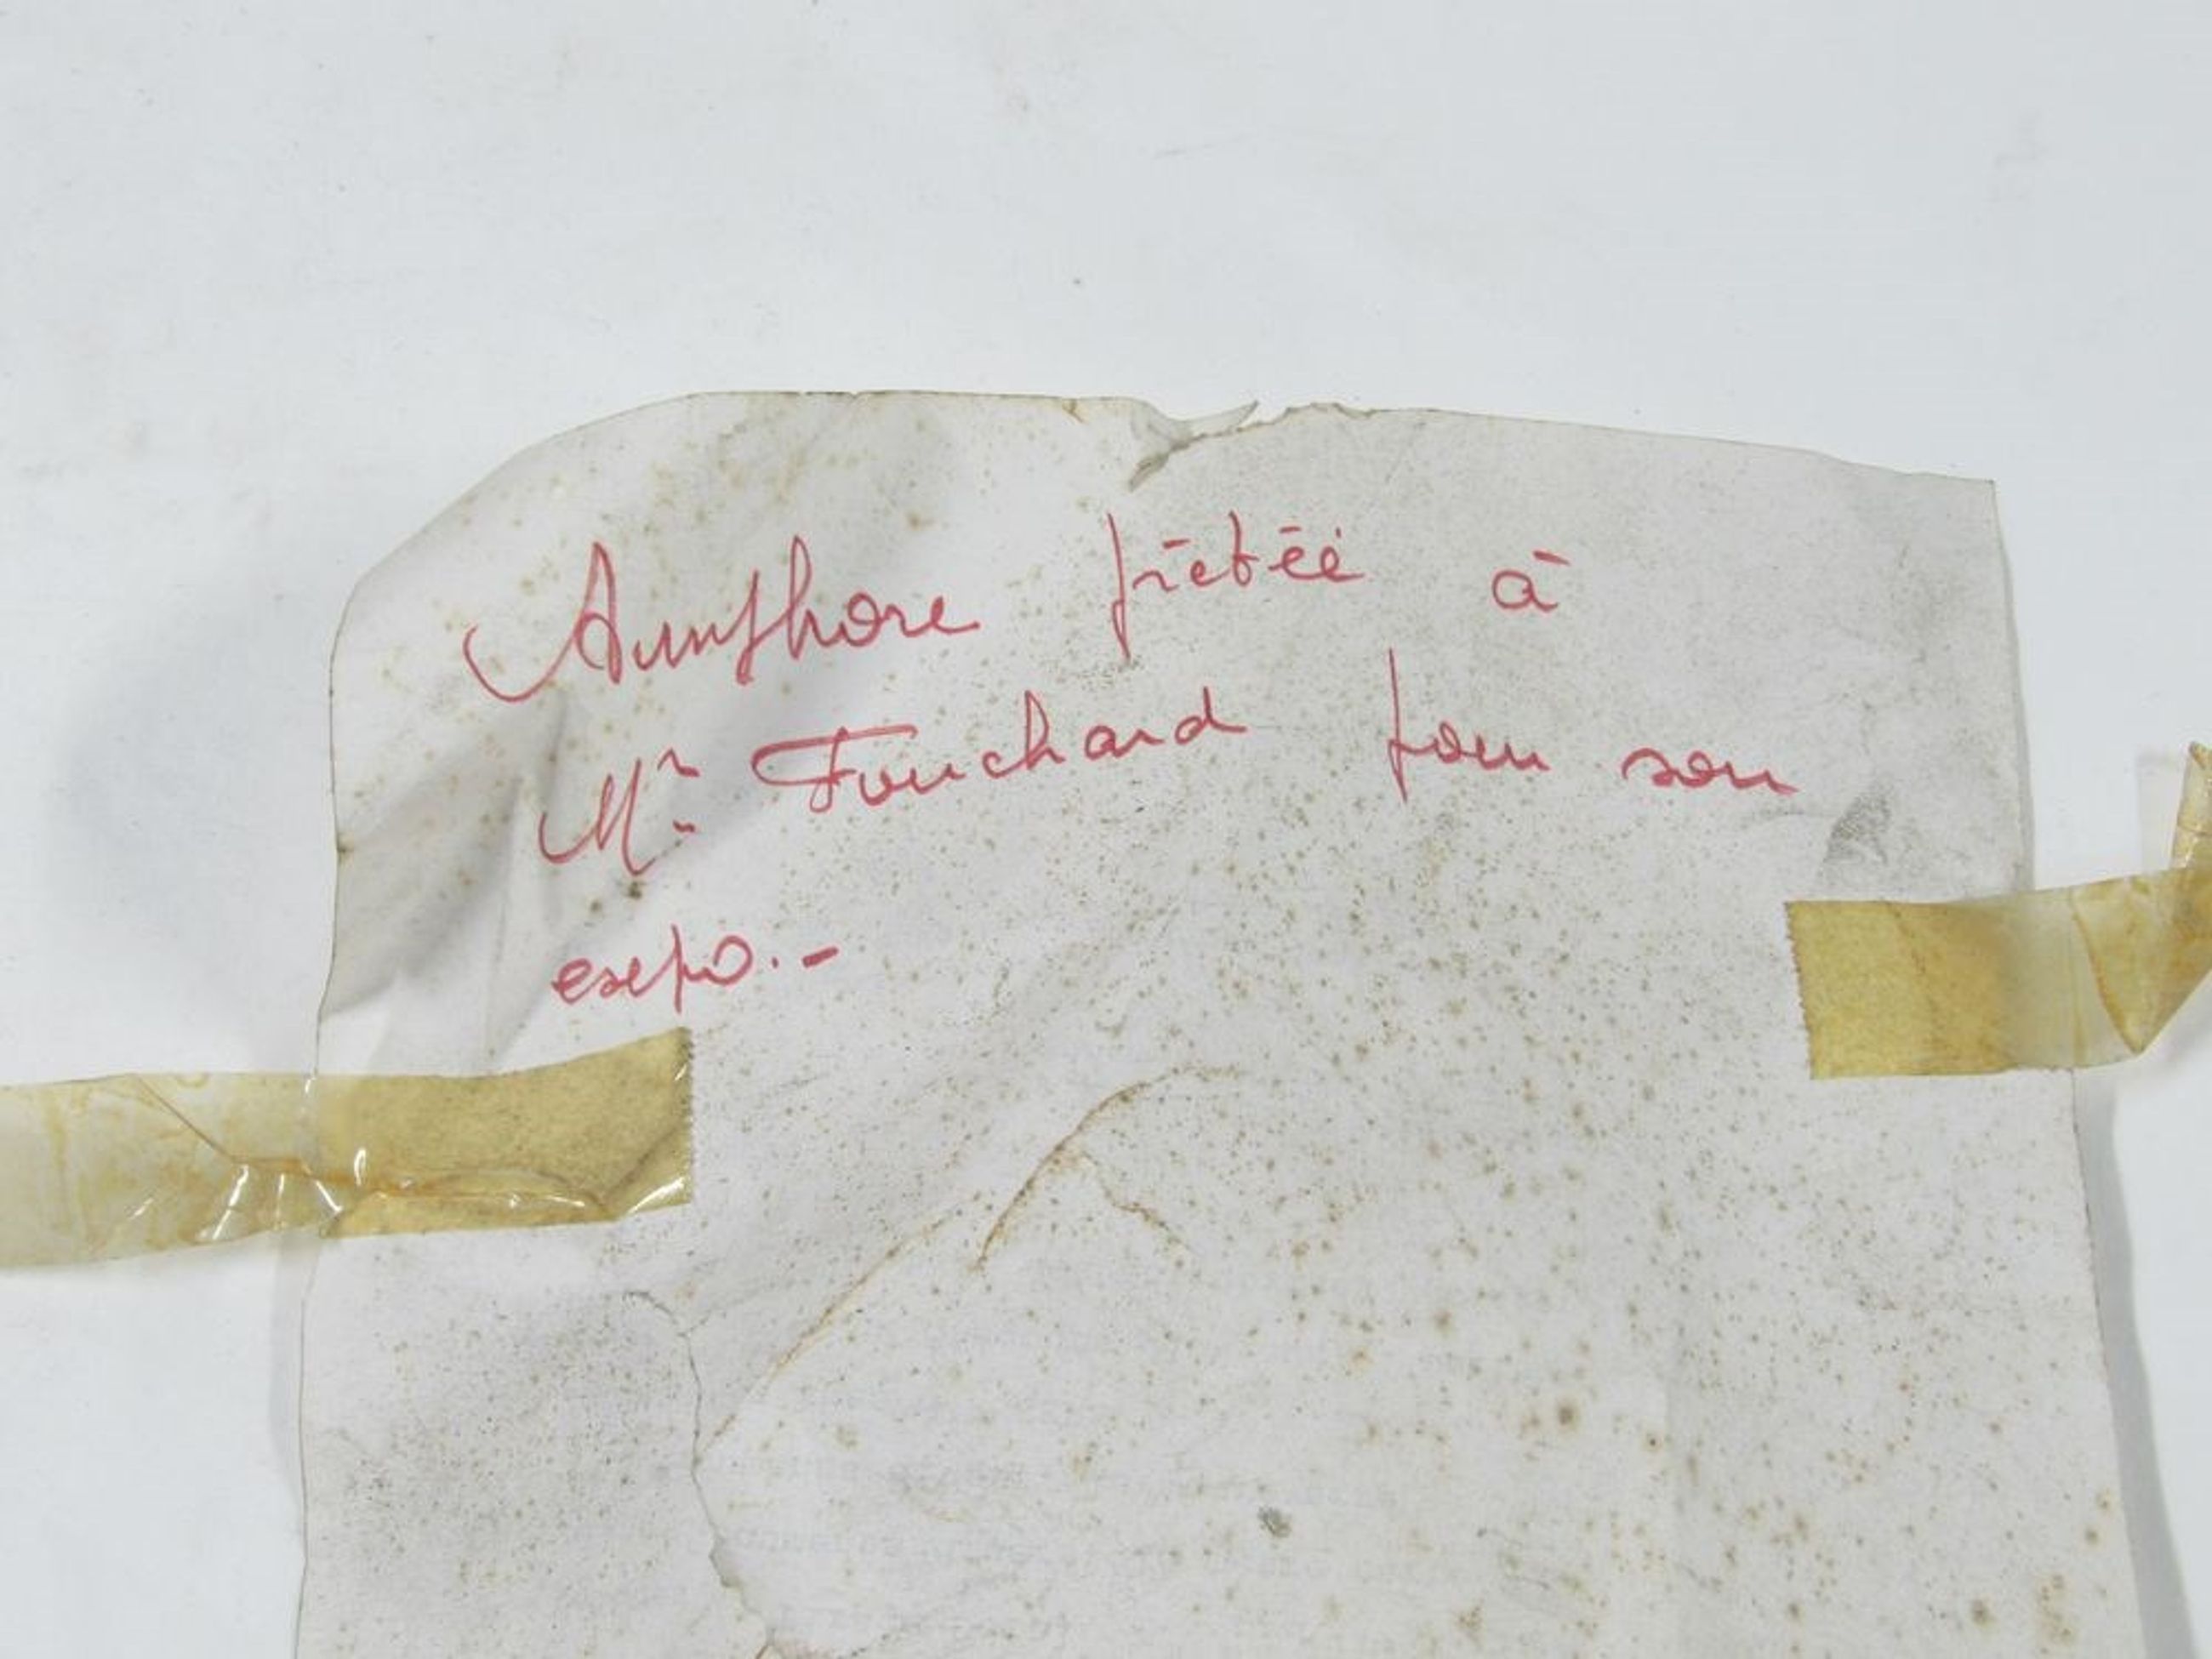 Amphore prêtée à
Mr Fouchard pour son
expo.-